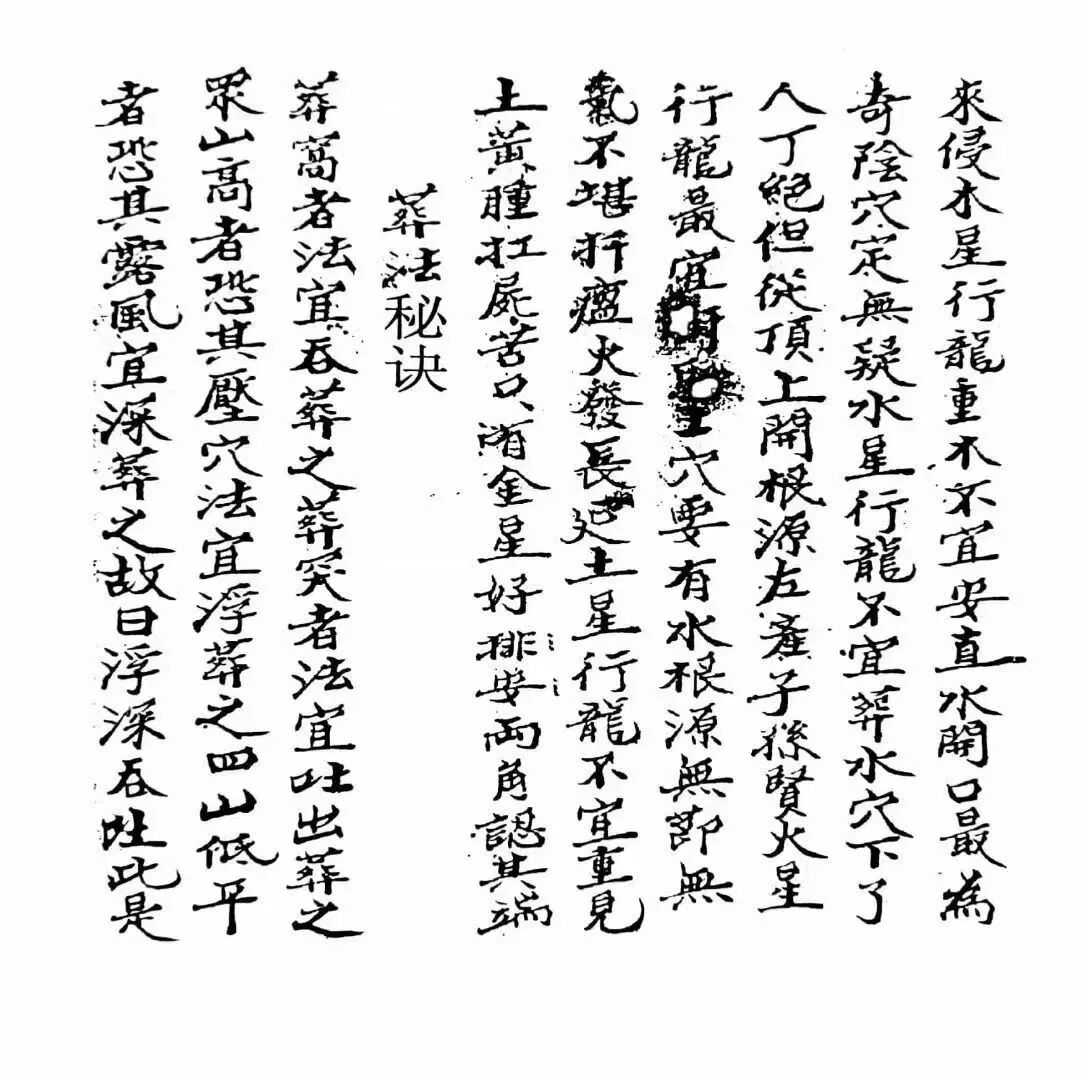 來侵木星行龍重木不宜安直水開口最為
奇陰穴定無疑水星行龍不宜葬水穴下了
人丁絕但從頂上開根源左產子孫賢火星
行龍最宜穴要有水根源無節無
氣不堪扦瘟火發長土星行龍不宜重見
土黃腫扛屍苦只有金星好排安兩角認其端
葬法秘诀
葬窩者法宜吞葬之葬突者法宜吐出葬之
眾山高者恐其壓穴法宜浮葬之四山低平
者恐其露風宜深葬之故曰浮深吞吐此是